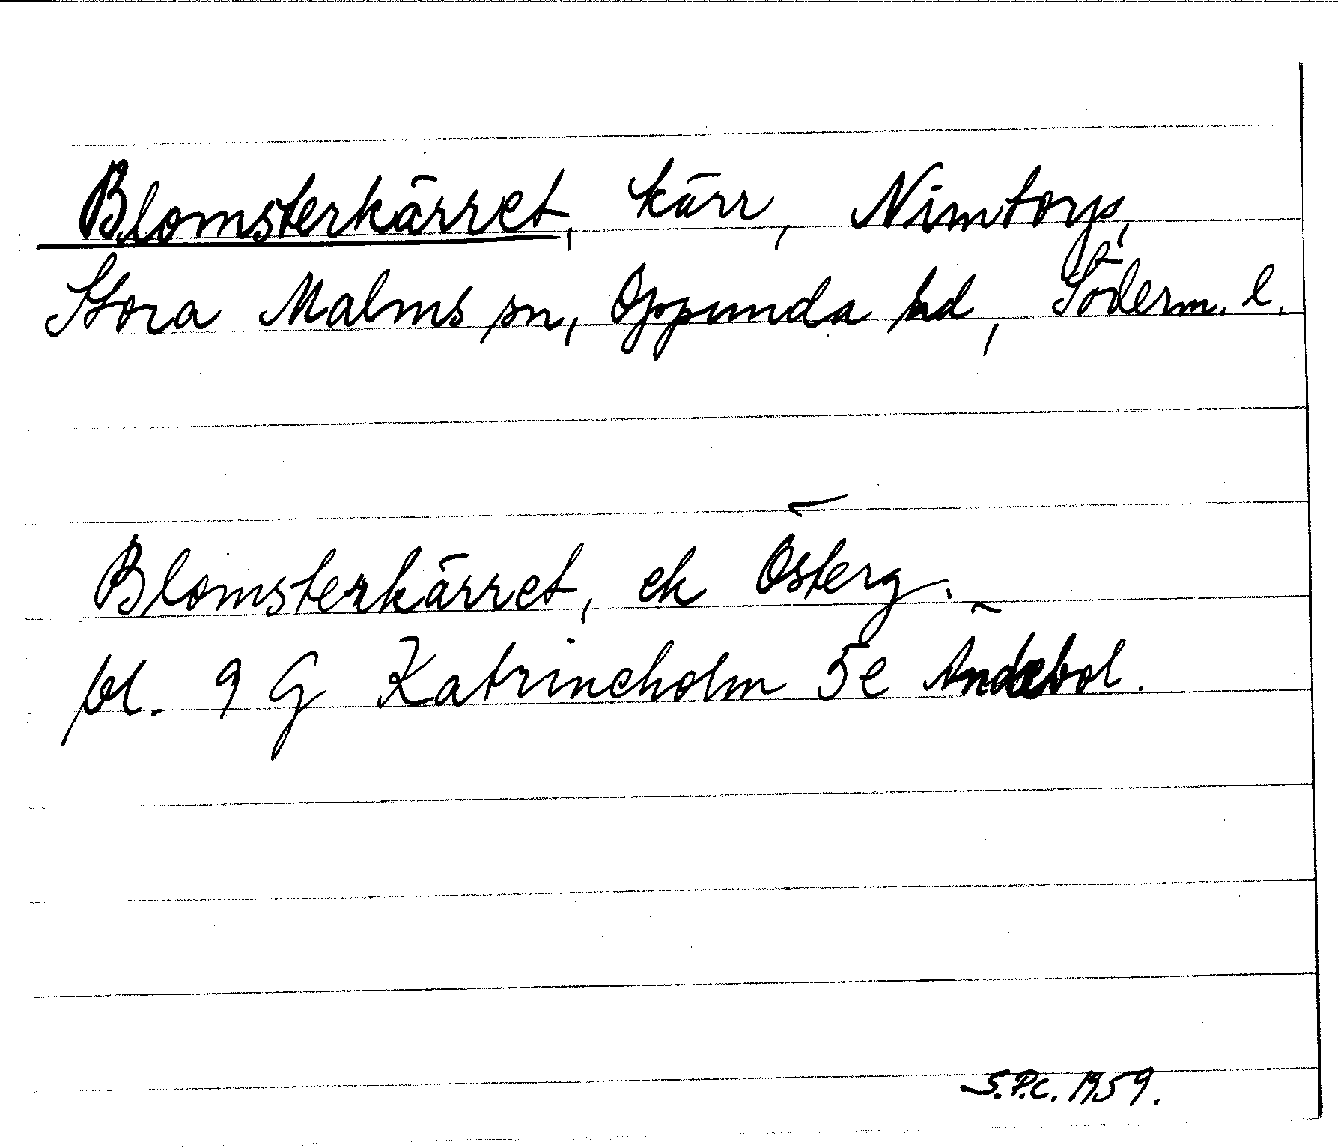 Blomsterkärret, kärr, Nimtorp,
Stora Malms sn, Oppunda hd, Söderm. l.
Blomsterkärret, ek Österg.
bl. 9 G Katrineholm 5e Ändebol.
S.P.C. 1959.